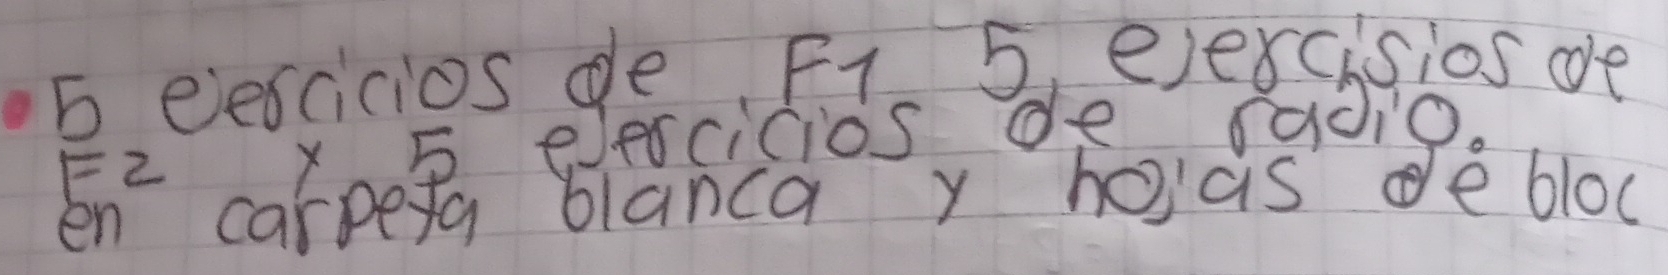 5 ejercicios de F1 5, ejercisios de
F2 y 5 ejercicios de radio.
en carpeta blanca y hojas de bloc